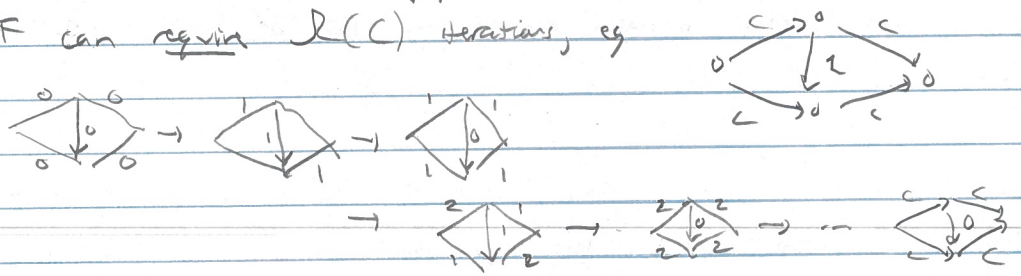 F can require Ω(C) iterations, eg
C C
1
C C
0 0 0 0 0 → 1 1 1 → 1 1 0 1 1
→ 2 1 1 1 2 → 2 2 0 2 2 → ... C C 0 C C